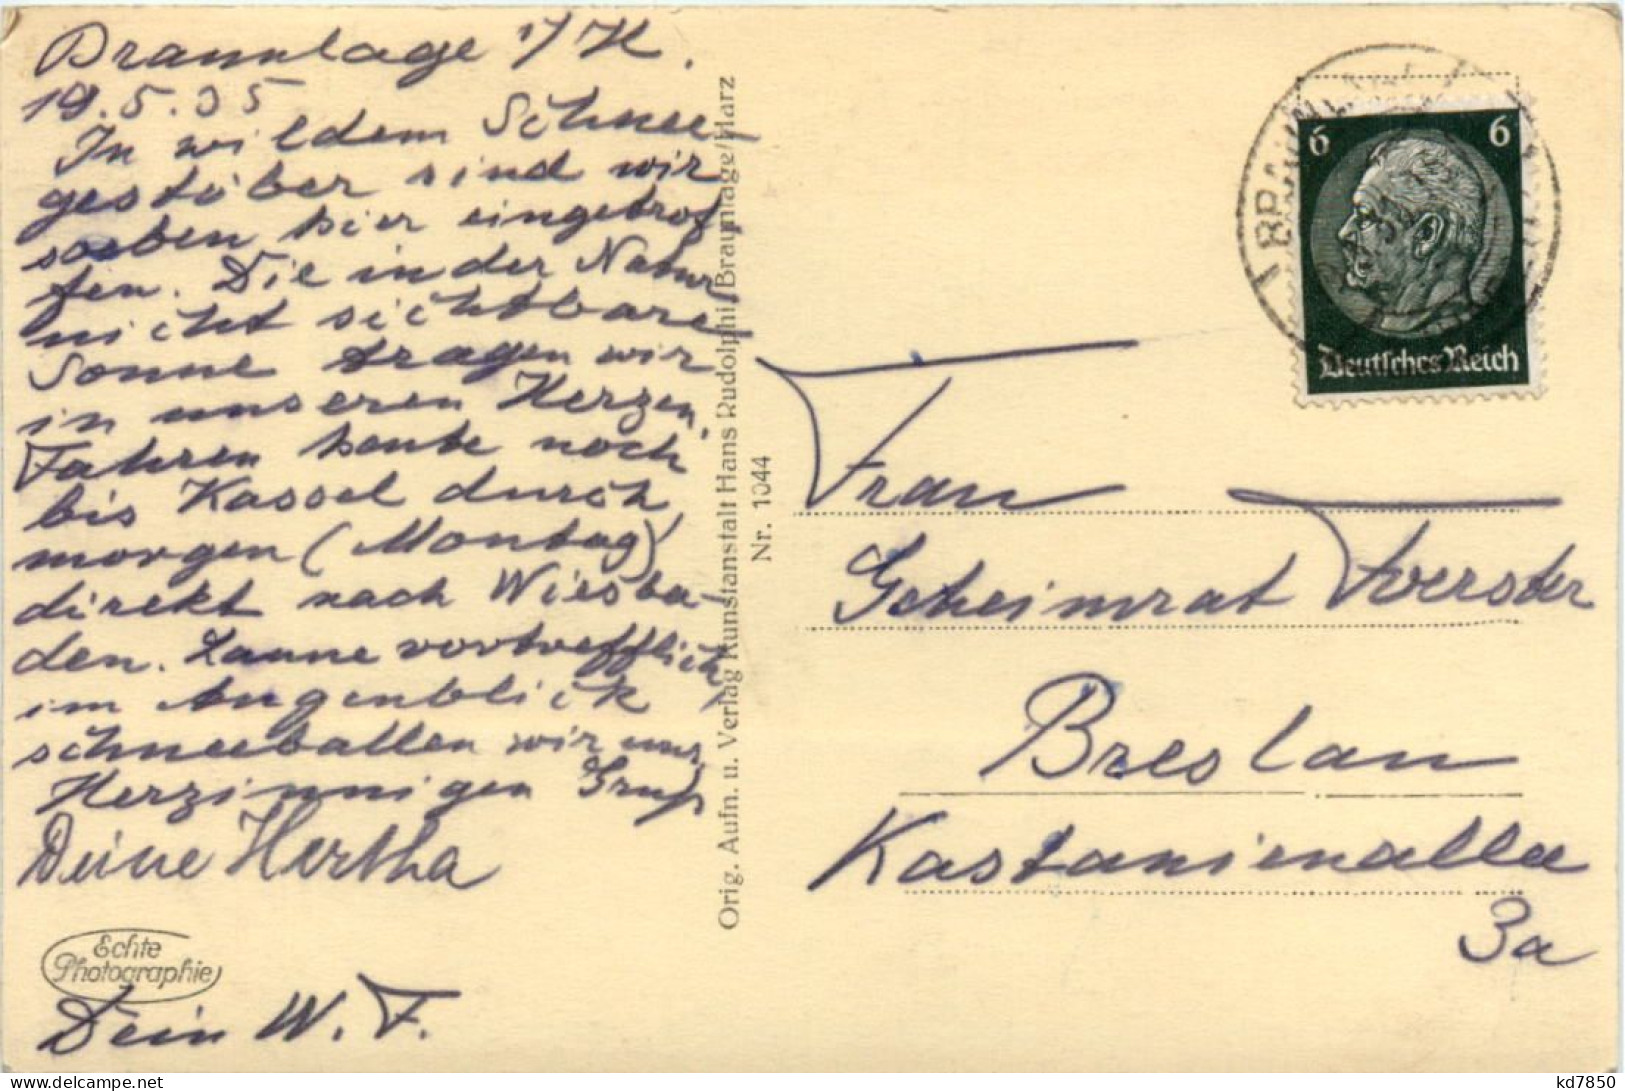 Braunlage i/H.
19.5.35
In wildem Schnee-
gestöber sind wir
soeben hier eingetrof-
fen. Die in der Natur
nicht sichtbare
Sonne tragen wir
in unseren Herzen,
Fahren heute noch
bis Kassel durch,
morgen (Montag)
direkt nach Wiesba-
den. Laune vortrefflich,
im Augenblick
schneeballen wir uns.
Herzinnigen Gruß
Deine Hertha
Echte
Photographie
Dein W. F.
Orig. Aufn. u. Verlag Kunstanstalt Hans Rudolphi, Braunlage/Harz
Nr. 1044
6 6
Deutsches Reich
Frau
Geheimrat Foerster
Breslau
Kastanienallee
3a
kd7850